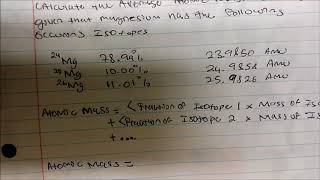 Calculate the Average Atomic
given that magnesium has the following
occuring Isotopes
24Mg 78.99% 23.9850 Amu
25Mg 10.00% 24.9858 Amu
26Mg 11.01% 25.9826 Amu
Atomic Mass = <Fraction of Isotope 1 x Mass of Iso
+ <Fraction of Isotope 2 x Mass of Is
+ ....
Atomic Mass =